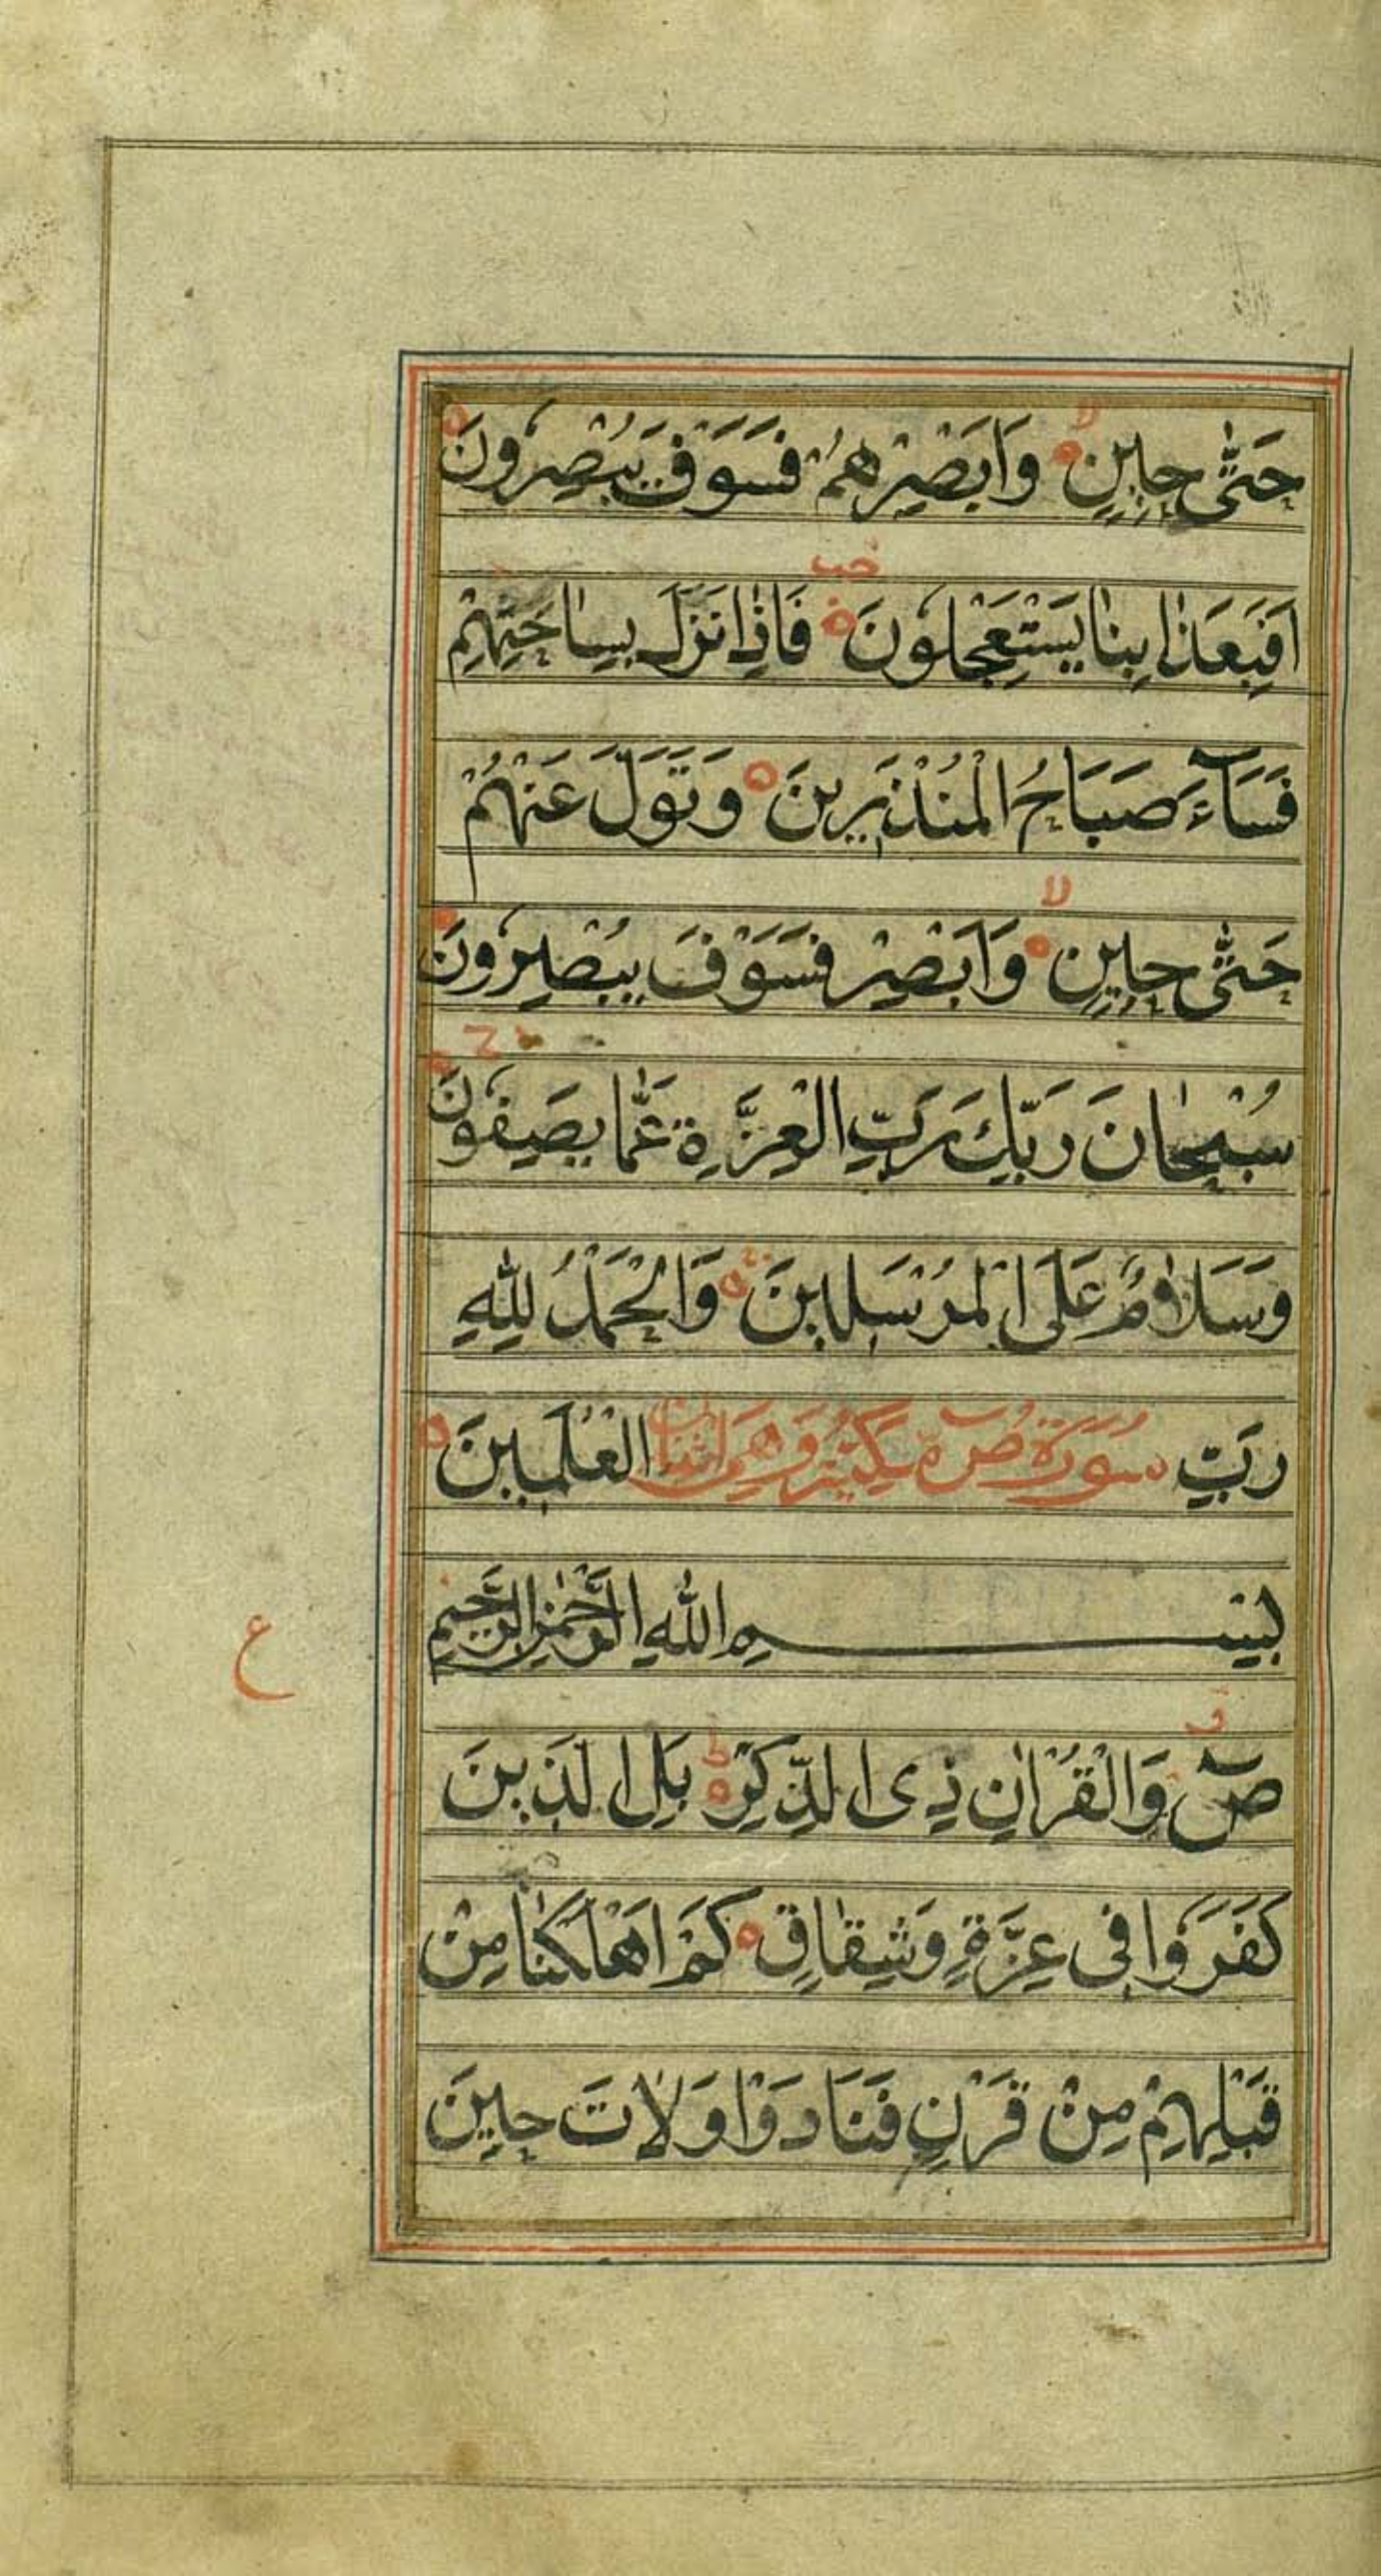 حَتّٰى حِيْنٍ وَاَبْصِرْهُمْ فَسَوْفَ يُبْصِرُونَ
اَفَبِعَذَابِنَا يَسْتَعْجِلُونَ فَاِذَا نَزَلَ بِسَاحَتِهِمْ
فَسَآءَ صَبَاحُ الْمُنْذَرِينَ وَتَوَلَّ عَنْهُمْ
حَتّٰى حِيْنٍ وَاَبْصِرْ فَسَوْفَ يُبْصِرُونَ
سُبْحَانَ رَبِّكَ رَبِّ الْعِزَّةِ عَمَّا يَصِفُونَ
وَسَلَامٌ عَلَى الْمُرْسَلِينَ وَالْحَمْدُ لِلّٰهِ
رَبِّ الْعٰلَمِينَ سُورَةُ صٓ مَكِّيَّةٌ وَهِيَ
بِسْمِ اللّٰهِ الرَّحْمٰنِ الرَّحِيمِ
ع
صٓ وَالْقُرْاٰنِ ذِى الذِّكْرِ بَلِ الَّذِينَ
كَفَرُوا فِى عِزَّةٍ وَشِقَاقٍ كَمْ اَهْلَكْنَا مِنْ
قَبْلِهِمْ مِنْ قَرْنٍ فَنَادَوْا وَلَاتَ حِينَ